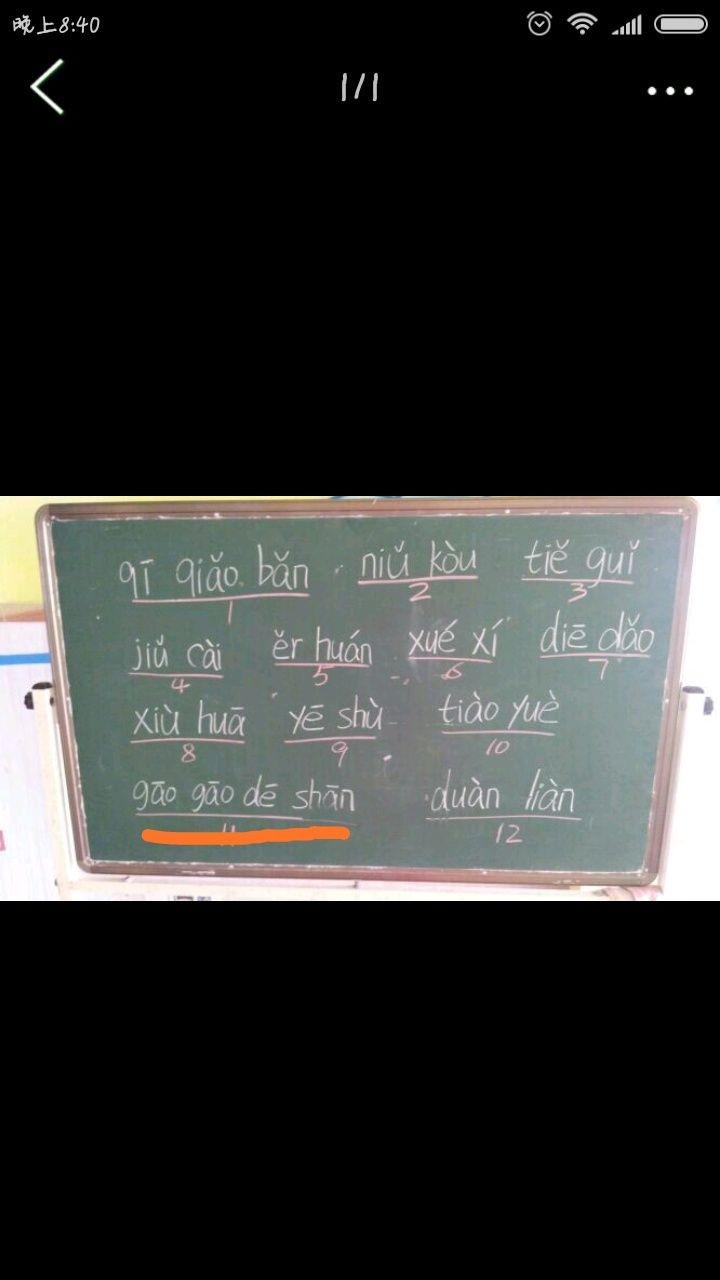 晚上8:40
1/1
qī qiǎo bǎn niǔ kòu tiě guǐ
1 2 3
jiǔ cài ěr huán xué xí diē dǎo
4 5 6 7
xiù huā yē shù tiào yuè
8 9 10
gāo gāo dē shān duàn liàn
11 12